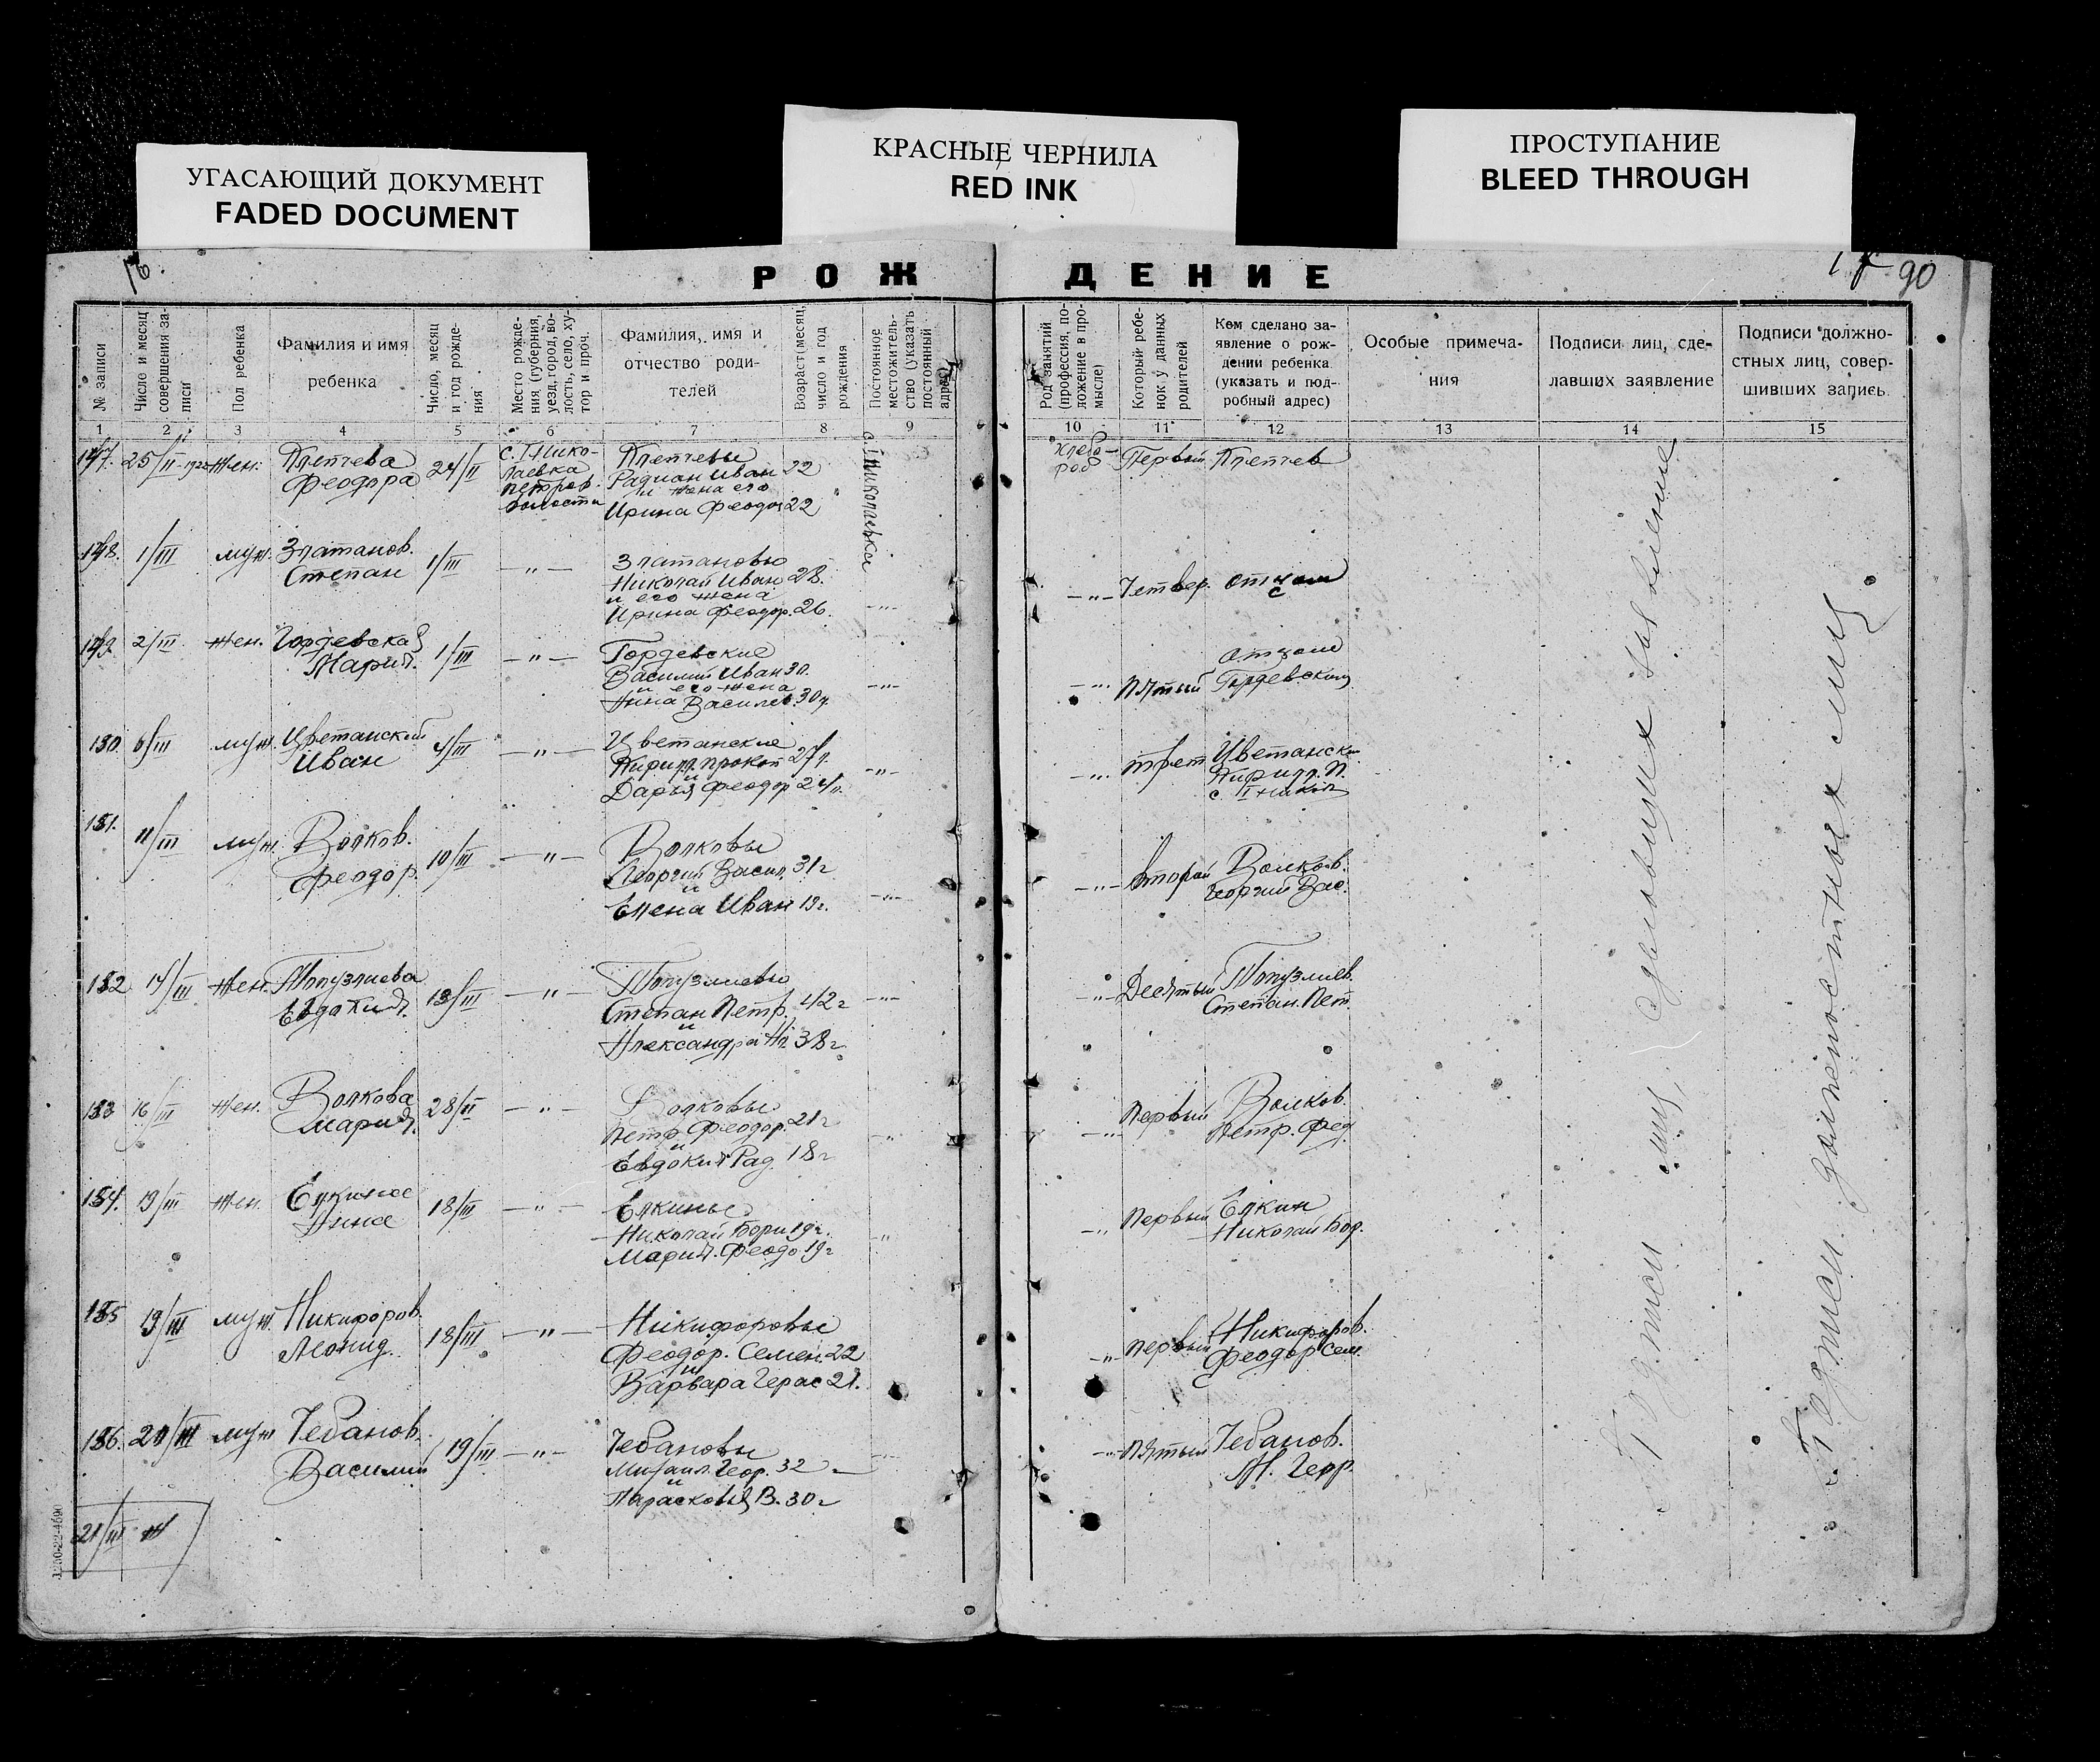 УГАСАЮЩИЙ ДОКУМЕНТ
FADED DOCUMENT
КРАСНЫЕ ЧЕРНИЛА
RED INK
ПРОСТУПАНИЕ
BLEED THROUGH
16.
РОЖДЕНИЕ
90
№ записи
Число и месяц совершения записи
Пол ребенка
Фамилия и имя
ребенка
Число, месяц и год рождения
Место рождения (губерния, уезд, город, волость, село, хутор и проч.
Фамилия, имя и
отчество роди-
телей
Возраст (месяц, число и год рождения
Постоянное местожительство (указать постоянный адрес)
Род занятий (профессия, положение в промысле)
Который ребенок у данных родителей
Кем сделано за-
явление о рож-
дении ребенка
(указать и под-
робный адрес)
Особые примеча-
ния
Подписи лиц, сде-
лавших заявление
Подписи должно-
стных лиц, совер-
шивших запись.
1 2 3 4 5 6 7 8 9 10 11 12 13 14 15
25/II Жен. Клепчева
Феодора
24/II
с. I Нико-
лаевка
Петров.
волости
Клепчевы
Радиан Иван 22
и жена его
Ирина Феодор 22
с. I Николаевка
Хлебо-
роб
Первый Клепчев
1/III муж. Златанов.
Степан
1/III — " —
Златановы
Николай Иван 28.
и его жена
Ирина Феодор. 26.
— " — Четвер. отцом
2/III. Жен. Гордевская
Мария.
1/III — " —
Гордевские
Василий Иван 30.
и его жена
Анна Василев. 30 г.
— " — пятый
отцом
Гордевским
130. 6/III муж. Цветанский
Иван
4/III — " —
Цветанские
Кирилл Прокоп 27 г.
и
Дарья Феодор 24 г.
— " — трет Цветански
Кирилл. П.
131. 11/III муж. Волков.
Феодор.
10/III — " —
Волковы
Георгий Васил. 31 г
и
Елена Иван 19 г.
— " — второй Волков.
Георгий Вас.
132 14/III Жен. Топузлиева
Евдокия.
13/III — " —
Топузлиевы
Степан Петр. 42 г
и
Александра 38 г
— " — Десятый Топузлиев.
Степан. Пет.
133 16/III Жен. Волкова
Мария.
28/II — " —
Волковы
Петр Феодор. 21 г
и
Евдокия Рад 18 г
— " — Первый Волков.
Петр. Фед
134. 19/III Жен. Елкина
Анна
18/III — " —
Елкины
Николай Бори 19 г.
Мария. Феодо 19 г
— " — Первый Елкин
Николай Бор.
135 19/III муж. Никифоров.
Леонид.
18/III — " —
Никифоровы
Феодор. Семен. 22
и
Варвара Герас 21.
— " — первый Никифоров.
Феодор Сем.
136. 20/III муж Чебанов.
Василий
19/III — " —
Чебановы
Михаил. Геор. 32
и
Парасковья В. 30 г
— " — пятый Чебанов.
М. Геор.
21/III
Подписи лиц, сделавших заявление
Подписи должностных лиц